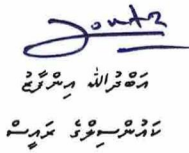 ޢަބްދުﷲ އިންފާޒު
ކައުންސިލްގެ ރައީސް